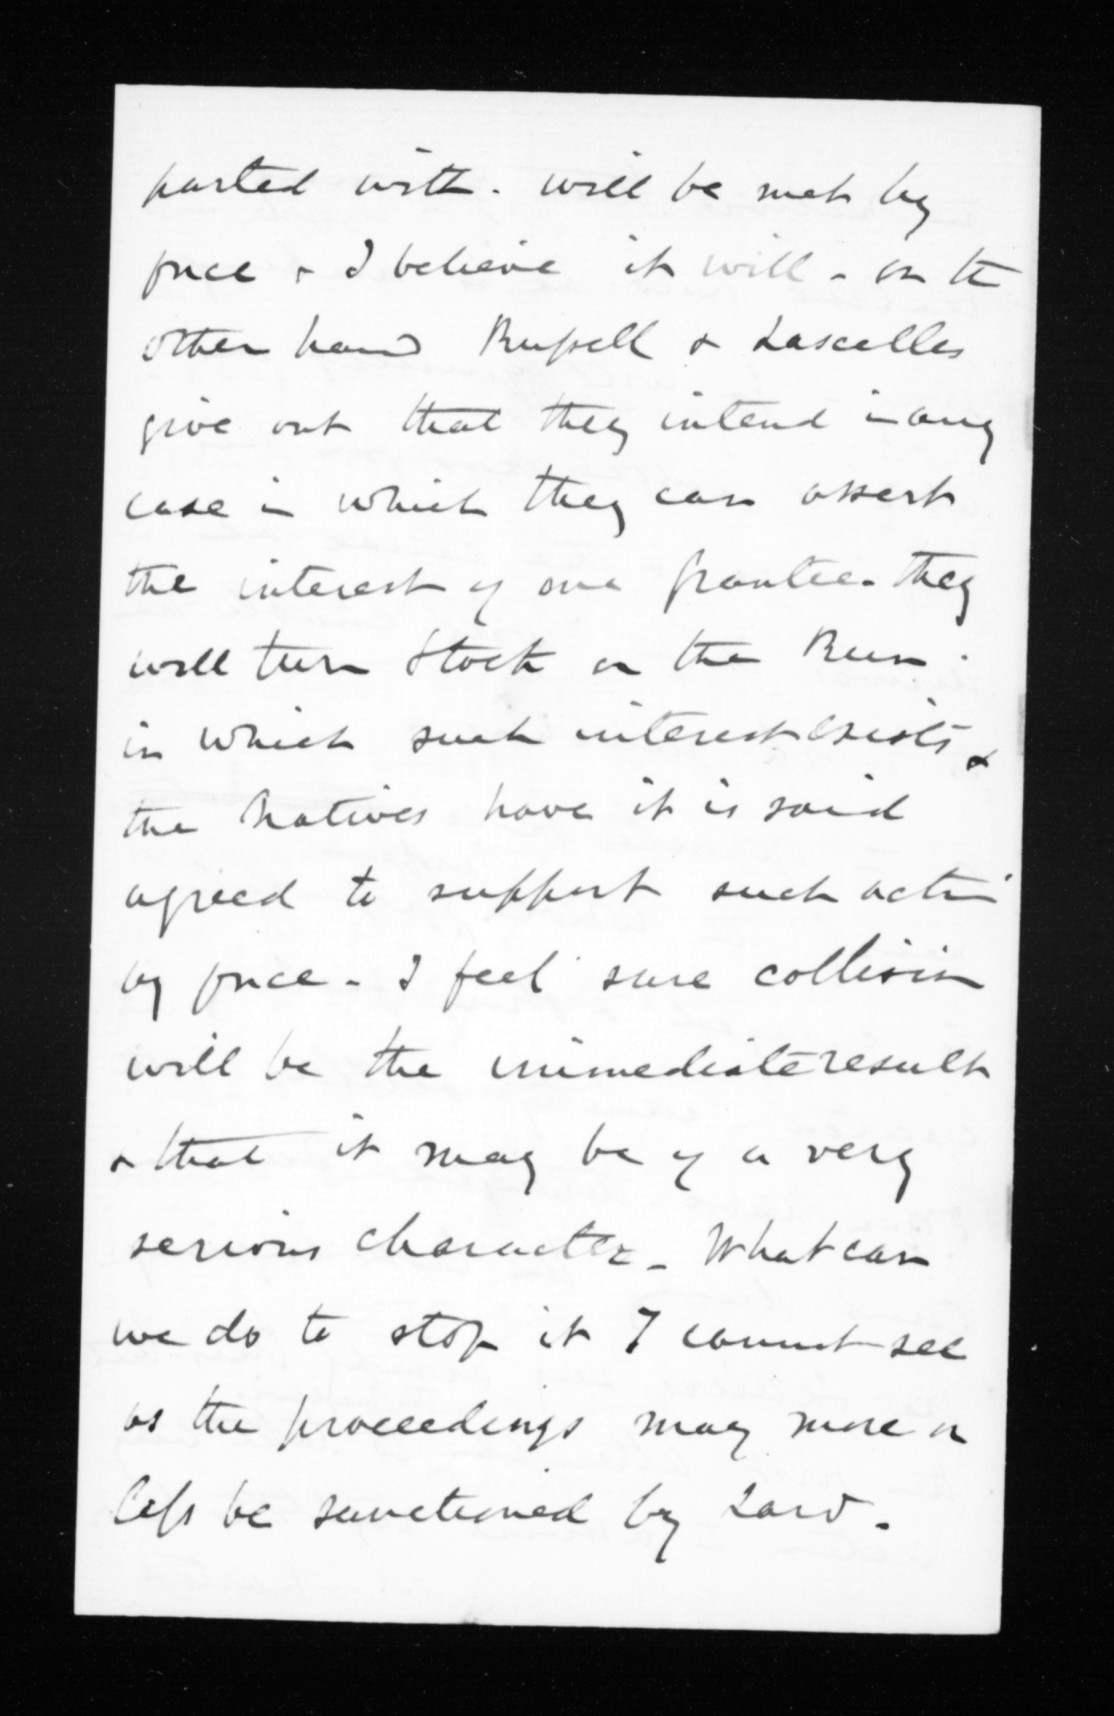 parted with. will be met by
force & I believe it will - on the
other hand Russell & Lascelles
give out that they intend in any
case in which they can assert
the interest of one grantee - they
will turn Stock on the Run.
in which such interest exists &
the Natives have it is said
agreed to support such action
by force - I feel sure collision
will be the immediate result
& that it may be of a very
serious character - What can
we do to stop it I cannot see
as the proceedings may more or
less be sanctioned by Law -